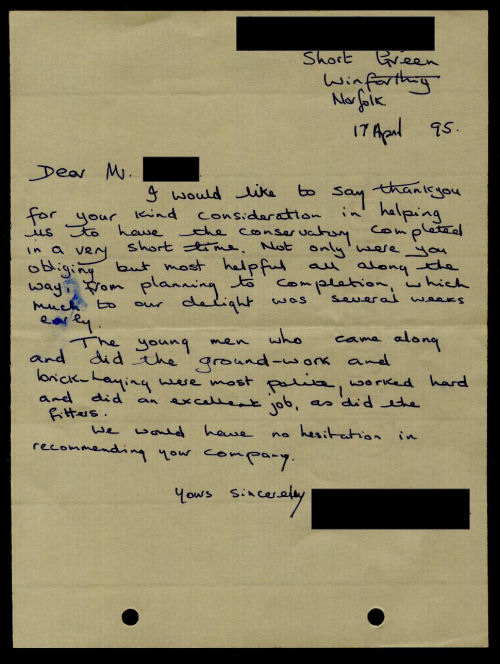 Short Green
Winfarthing
Norfolk
17 April 95.
Dear Mr.
I would like to say thankyou
for your kind consideration in helping
us to have the conservatory completed
in a very short time. Not only were you
obliging but most helpful all along the
way, from planning to completion, which
much to our delight was several weeks
early.
The young men who came along
and did the ground-work and
brick-laying were most polite, worked hard
and did an excellent job, as did the
fitters.
We would have no hesitation in
recommending your company.
Yours Sincereley